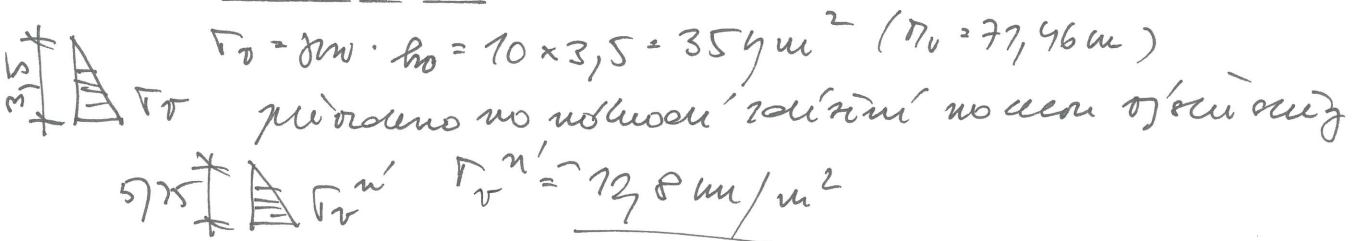 3,5 σv = γw · hv = 10 × 3,5 = 35 kN/m² (Mv = 71,46 m)
σv převedeno na náhradní zatížení na celou výšku
5,75 σv^n' σv^n' = 12,8 kN/m²